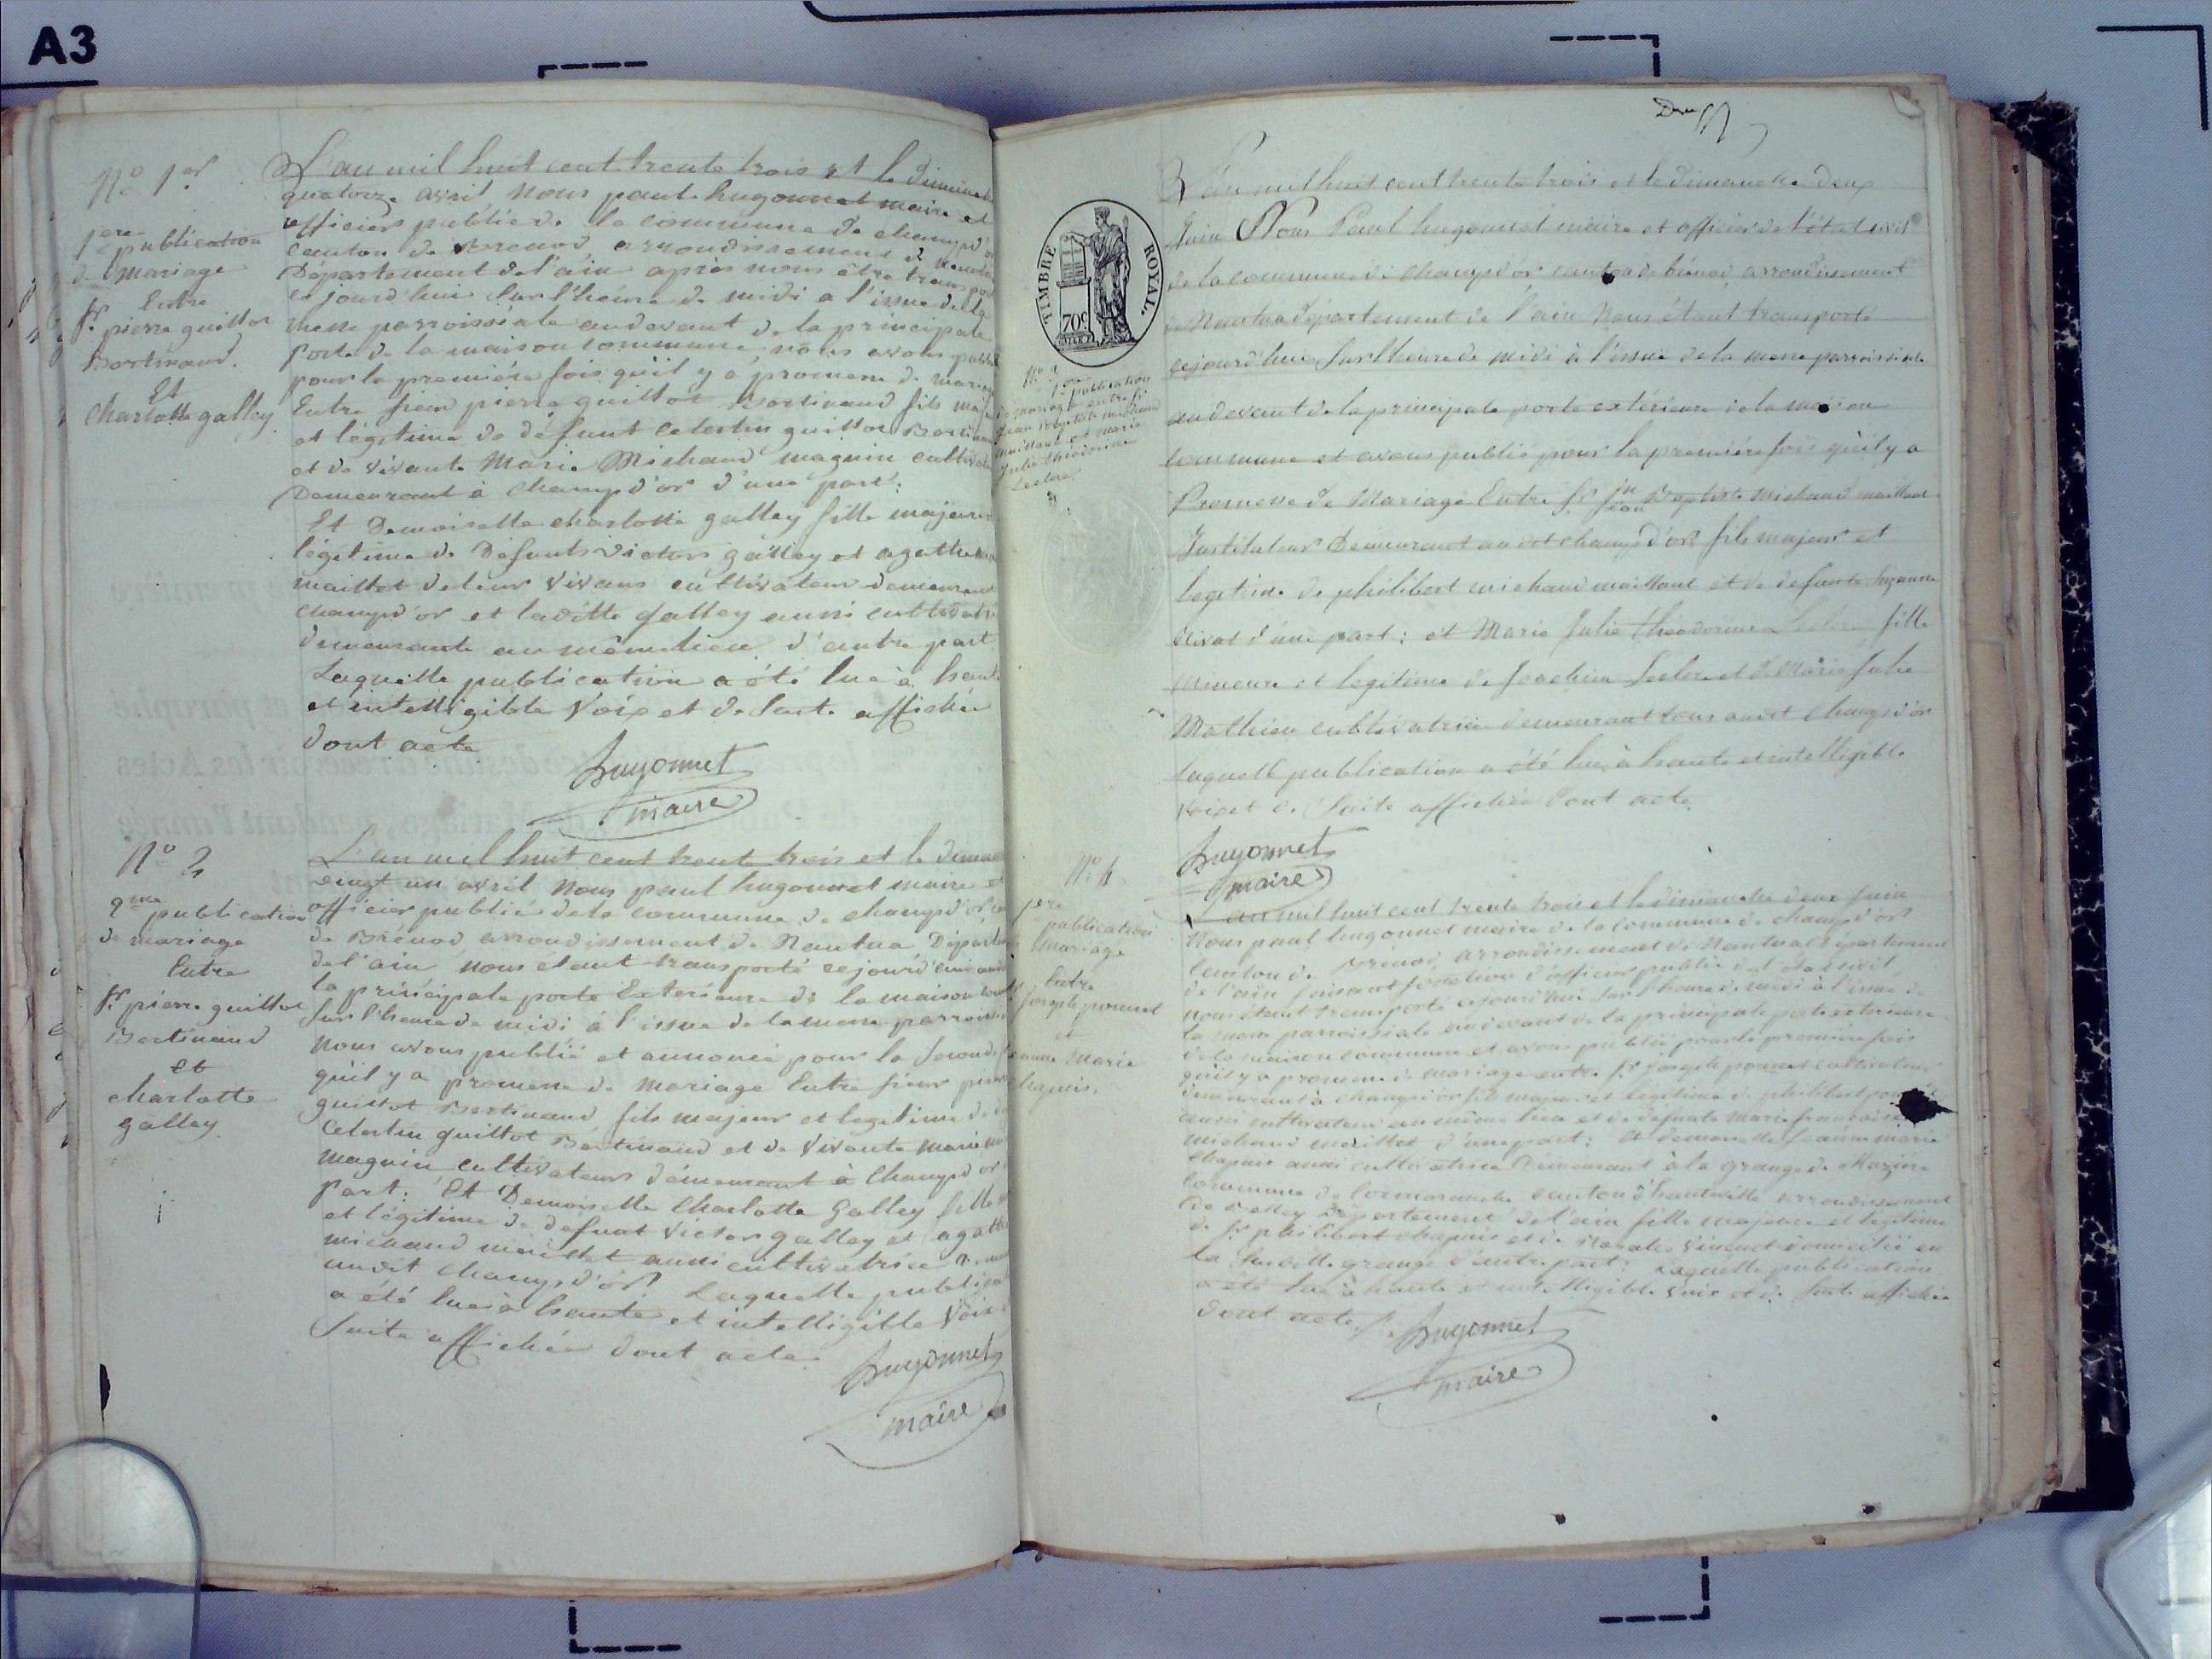 A3
N° 1er
1ere publication
de mariage
Entre
Sr pierre guillot
Bertinand.
Et
Charlotte galley
L'an mil huit cent trente trois et le dimanche
quatorze avril nous paul hugonnet maire et
officier public de la commune de champd'or
canton de Brenod arrondissement de nantua
Département de l'ain après nous être transporté
ce jourd'hui sur l'heure de midi a l'issue de la
messe parroissiale au devant de la principale
Porte de la maison commune, nous avons publié
pour la première fois qu'il y a promesse de mariage
Entre sieur pierre guillot Bertinand fils majeur
et légitime de défunt celestin guillot Bertinand
et de vivante Marie Michaud maguin cultivateurs
Demeurant à Champd'or d'une part:
Et Demoiselle charlotte galley fille majeure
légitime de Défunts victor galley et agathe
maillot de leur vivans cultivateur demeurant
champd'or et laditte galley aussi cultivatrice
demeurante au même lieu d'autre part
Laquelle publication a été lue à haute
et intelligible Voix et de Suite affichée
dont acte
hugonnet
maire
N° 2
2me publication
de mariage
Entre
Sr pierre guillot
Bertinand
et
charlotte
galley
L'an mil huit cent trente trois et le dimanche
vingt un avril nous paul hugonnet maire et
officier public de la commune de champd'or
de Brénod arrondissement de Nantua Départ
de l'ain nous étant transporté cejourd'hui
la principale porte Exterieure de la maison
sur l'heure de midi à l'issue de la messe parroiss
Nous avons publié et annoncé pour la seconde
qu'il y a promesse de mariage Entre sieur pierre
guillot Bertinand fils majeur et legitime de
celestin guillot Bertinand et de vivante marie
maguin cultivateurs démeurant à Champd'or
Part: Et Demoiselle Charlotte Galley fille
et légitime de defunt victor galley et agathe
michaud maillot aussi cultivatrice
audit champd'or Laquelle publicat
a été lue à haute et intelligible Voix
Suite affichée dont acte
hugonnet
maire
TIMBRE ROYAL.
70c
N° 3
1ere publication
de mariage entre sr
jean baptiste michaud
maillant et marie
Julie théodorine
Leclerc
L'an mil huit cent trente trois et le dimanche deux
Juin Nous Paul hugonnet maire et officier de l'état civil
de la commune de champd'or canton de brénod, arrondissement
de Nantua département de l'ain Nous étant transporté
cejourd'hui Sur l'heure de midi à l'issue de la messe parroissiale
au devant de la principale porte extérieure de la maison
commune et avons publié pour la première fois qu'il y a
Promesse de Mariage Entre Sr jean Baptiste michaud maillant
Instituteur Demeurant au dit champd'or fils majeur et
legitime de philibert michaud maillant et de defunte suzanne
d'une part: et Marie Julie théodorine Leclerc fille
mineure et legitime de Joachim Leclerc et de Marie Julie
Mathieu cultivatrice demeurant tous audit champd'or
laquelle publication a été lue à haute et intelligible
voix et de Suite affichée Dont acte
hugonnet
maire
N° 4
1ere
publication
mariage
Entre
joseph ponnet
et
marie
chapuis.
L'an mil huit cent trente trois et le dimanche deux Juin
Nous paul hugonnet maire de la commune de champd'or
canton de Brenod, arrondissement de Nantua département
de l'ain faisant fonction d'officier public de l'état civil
nous étant transporté cejourd'hui sur l'heure de midi à l'issue de
la messe parroissiale au devant de la principale porte exterieure
de la maison commune et avons publié pour la première fois
qu'il y a promesse de mariage entre Sr joseph ponnet cultivateur
demeurant à champd'or fils majeur et legitime de philibert
aussi cultivateur au même lieu et de defunte marie francoise
michaud maillot d'une part: Et demoiselle marie
Chapuis aussi cultivatrice Demeurant à la grange de Mazière
Commune de Cormaranche canton d'hauteville arrondissement
de Belley Département de l'ain fille majeure et legitime
de Sr philibert chapuis et de Rosalie domicilié en
la susditte grange d'autre part: Laquelle publication
a été lue à haute et intelligible voix et de Suite affichée
dont acte
hugonnet
maire